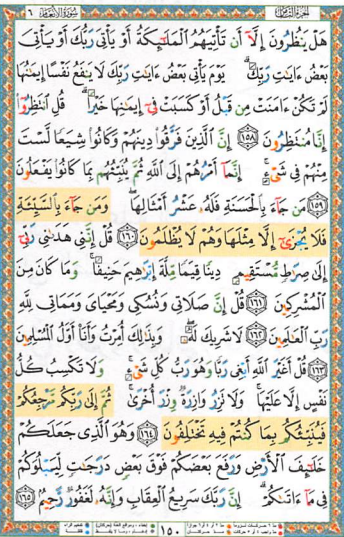 الجزء الثامن سورة الأنعام ٦
هَلْ يَنظُرُونَ إِلَّآ أَن تَأْتِيَهُمُ ٱلْمَلَٰٓئِكَةُ أَوْ يَأْتِيَ رَبُّكَ أَوْ يَأْتِيَ
بَعْضُ ءَايَٰتِ رَبِّكَ ۗ يَوْمَ يَأْتِي بَعْضُ ءَايَٰتِ رَبِّكَ لَا يَنفَعُ نَفْسًا إِيمَٰنُهَا
لَمْ تَكُنْ ءَامَنَتْ مِن قَبْلُ أَوْ كَسَبَتْ فِىٓ إِيمَٰنِهَا خَيْرًا ۗ قُلِ ٱنتَظِرُوٓا۟
إِنَّا مُنتَظِرُونَ ١٥٨ إِنَّ ٱلَّذِينَ فَرَّقُوا۟ دِينَهُمْ وَكَانُوا۟ شِيَعًا لَّسْتَ
مِنْهُمْ فِى شَىْءٍ ۚ إِنَّمَآ أَمْرُهُمْ إِلَى ٱللَّهِ ثُمَّ يُنَبِّئُهُم بِمَا كَانُوا۟ يَفْعَلُونَ
١٥٩ مَن جَآءَ بِٱلْحَسَنَةِ فَلَهُۥ عَشْرُ أَمْثَالِهَا ۖ وَمَن جَآءَ بِٱلسَّيِّئَةِ
فَلَا يُجْزَىٰٓ إِلَّا مِثْلَهَا وَهُمْ لَا يُظْلَمُونَ ١٦٠ قُلْ إِنَّنِى هَدَىٰنِى رَبِّىٓ
إِلَىٰ صِرَٰطٍ مُّسْتَقِيمٍ دِينًا قِيَمًا مِّلَّةَ إِبْرَٰهِيمَ حَنِيفًا ۚ وَمَا كَانَ مِنَ
ٱلْمُشْرِكِينَ ١٦١ قُلْ إِنَّ صَلَاتِى وَنُسُكِى وَمَحْيَاىَ وَمَمَاتِى لِلَّهِ
رَبِّ ٱلْعَٰلَمِينَ ١٦٢ لَا شَرِيكَ لَهُۥ ۖ وَبِذَٰلِكَ أُمِرْتُ وَأَنَا۠ أَوَّلُ ٱلْمُسْلِمِينَ
١٦٣ قُلْ أَغَيْرَ ٱللَّهِ أَبْغِى رَبًّا وَهُوَ رَبُّ كُلِّ شَىْءٍ ۚ وَلَا تَكْسِبُ كُلُّ
نَفْسٍ إِلَّا عَلَيْهَا ۚ وَلَا تَزِرُ وَازِرَةٌ وِزْرَ أُخْرَىٰ ۚ ثُمَّ إِلَىٰ رَبِّكُم مَّرْجِعُكُمْ
فَيُنَبِّئُكُم بِمَا كُنتُمْ فِيهِ تَخْتَلِفُونَ ١٦٤ وَهُوَ ٱلَّذِى جَعَلَكُمْ
خَلَٰٓئِفَ ٱلْأَرْضِ وَرَفَعَ بَعْضَكُمْ فَوْقَ بَعْضٍ دَرَجَٰتٍ لِّيَبْلُوَكُمْ
فِى مَآ ءَاتَىٰكُمْ ۗ إِنَّ رَبَّكَ سَرِيعُ ٱلْعِقَابِ وَإِنَّهُۥ لَغَفُورٌ رَّحِيمٌۢ ١٦٥
١٥٠